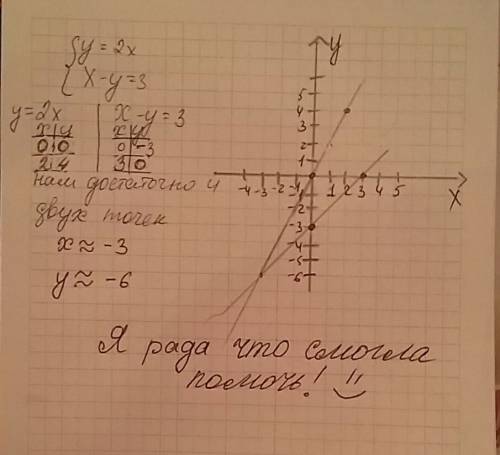 { y = 2x
{ x - y = 3
y = 2x | x - y = 3
x | y    x | y
0 | 0    0 | -3
2 | 4    3 | 0
нам достаточно и
двух точек
x ≈ -3
y ≈ -6
y
5
4
3
2
1
-4 -3 -2 -1 1 2 3 4 5
x
-2
-3
-4
-5
-6
Я рада что смогла
помочь!